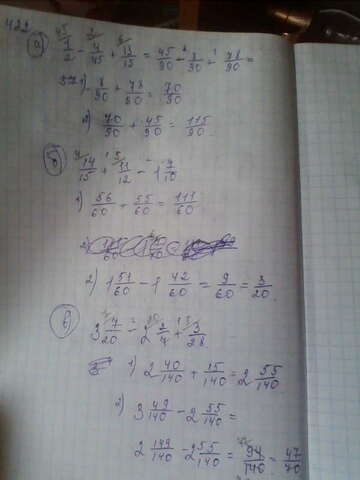 422
а) 45/ 1/2 - 2/ 4/45 + 6/ 13/15 = 45/90 - 8/90 + 78/90 =
1) 8/90 + 78/90 = 70/90
2) 70/90 + 45/90 = 115/90.
б) 4/ 14/15 + 5/ 11/12 - 1 7/10
1) 56/60 + 55/60 = 111/60
2) 1 51/60 - 1 42/60 = 9/60 = 3/20.
в) 3 7/20 - 2 2/7 + 3/28
1) 2 40/140 + 15/140 = 2 55/140
2) 3 49/140 - 2 55/140 =
2 149/140 - 2 55/140 = 94/140 = 47/70